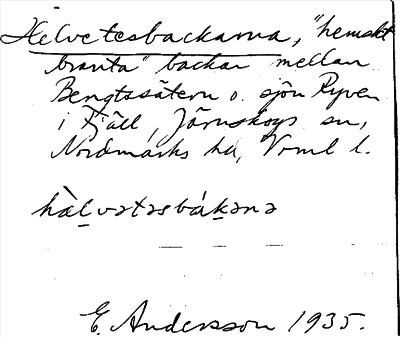 Helvetesbackarna, "hemskt
branta" backar mellan
Bengtssätern o. sjön Ryven
i Fjäll, Järnskogs sn,
Nordmarks hd, Vrml l.
hæ̀lvətəsbákəṇa
E. Andersson 1935.